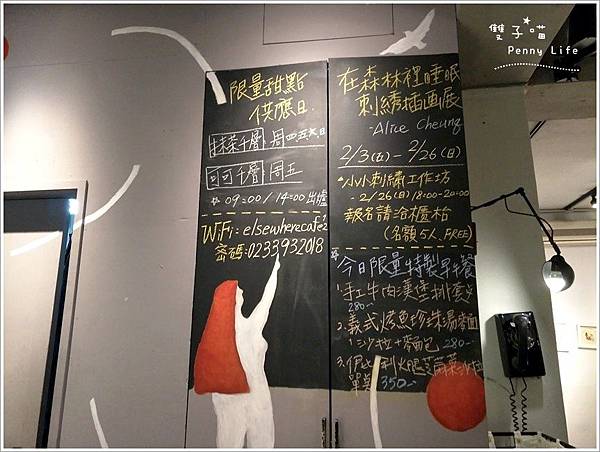 雙子喵
Penny Life
限量甜點
供應日.
抹茶千層 周四五六日
可可千層 周五
☆ 09:00 / 14:00 出爐
WiFi: elsewherecafe2
密碼: 0233932018
在森林裡睡眠
刺繡插画展
- Alice Cheung
2/3(五) - 2/26(日)
*小小刺繡工作坊
- 2/26(日) 18:00-20:00
報名請洽櫃枱
(名額5人, FREE)
☆今日限量特製早午餐
1.手工牛肉漢堡排套
280-
2.義式烤魚珍珠湯麵
沙拉+麵包 280-
3.伊比利火腿菠菜沙拉
單點 350-